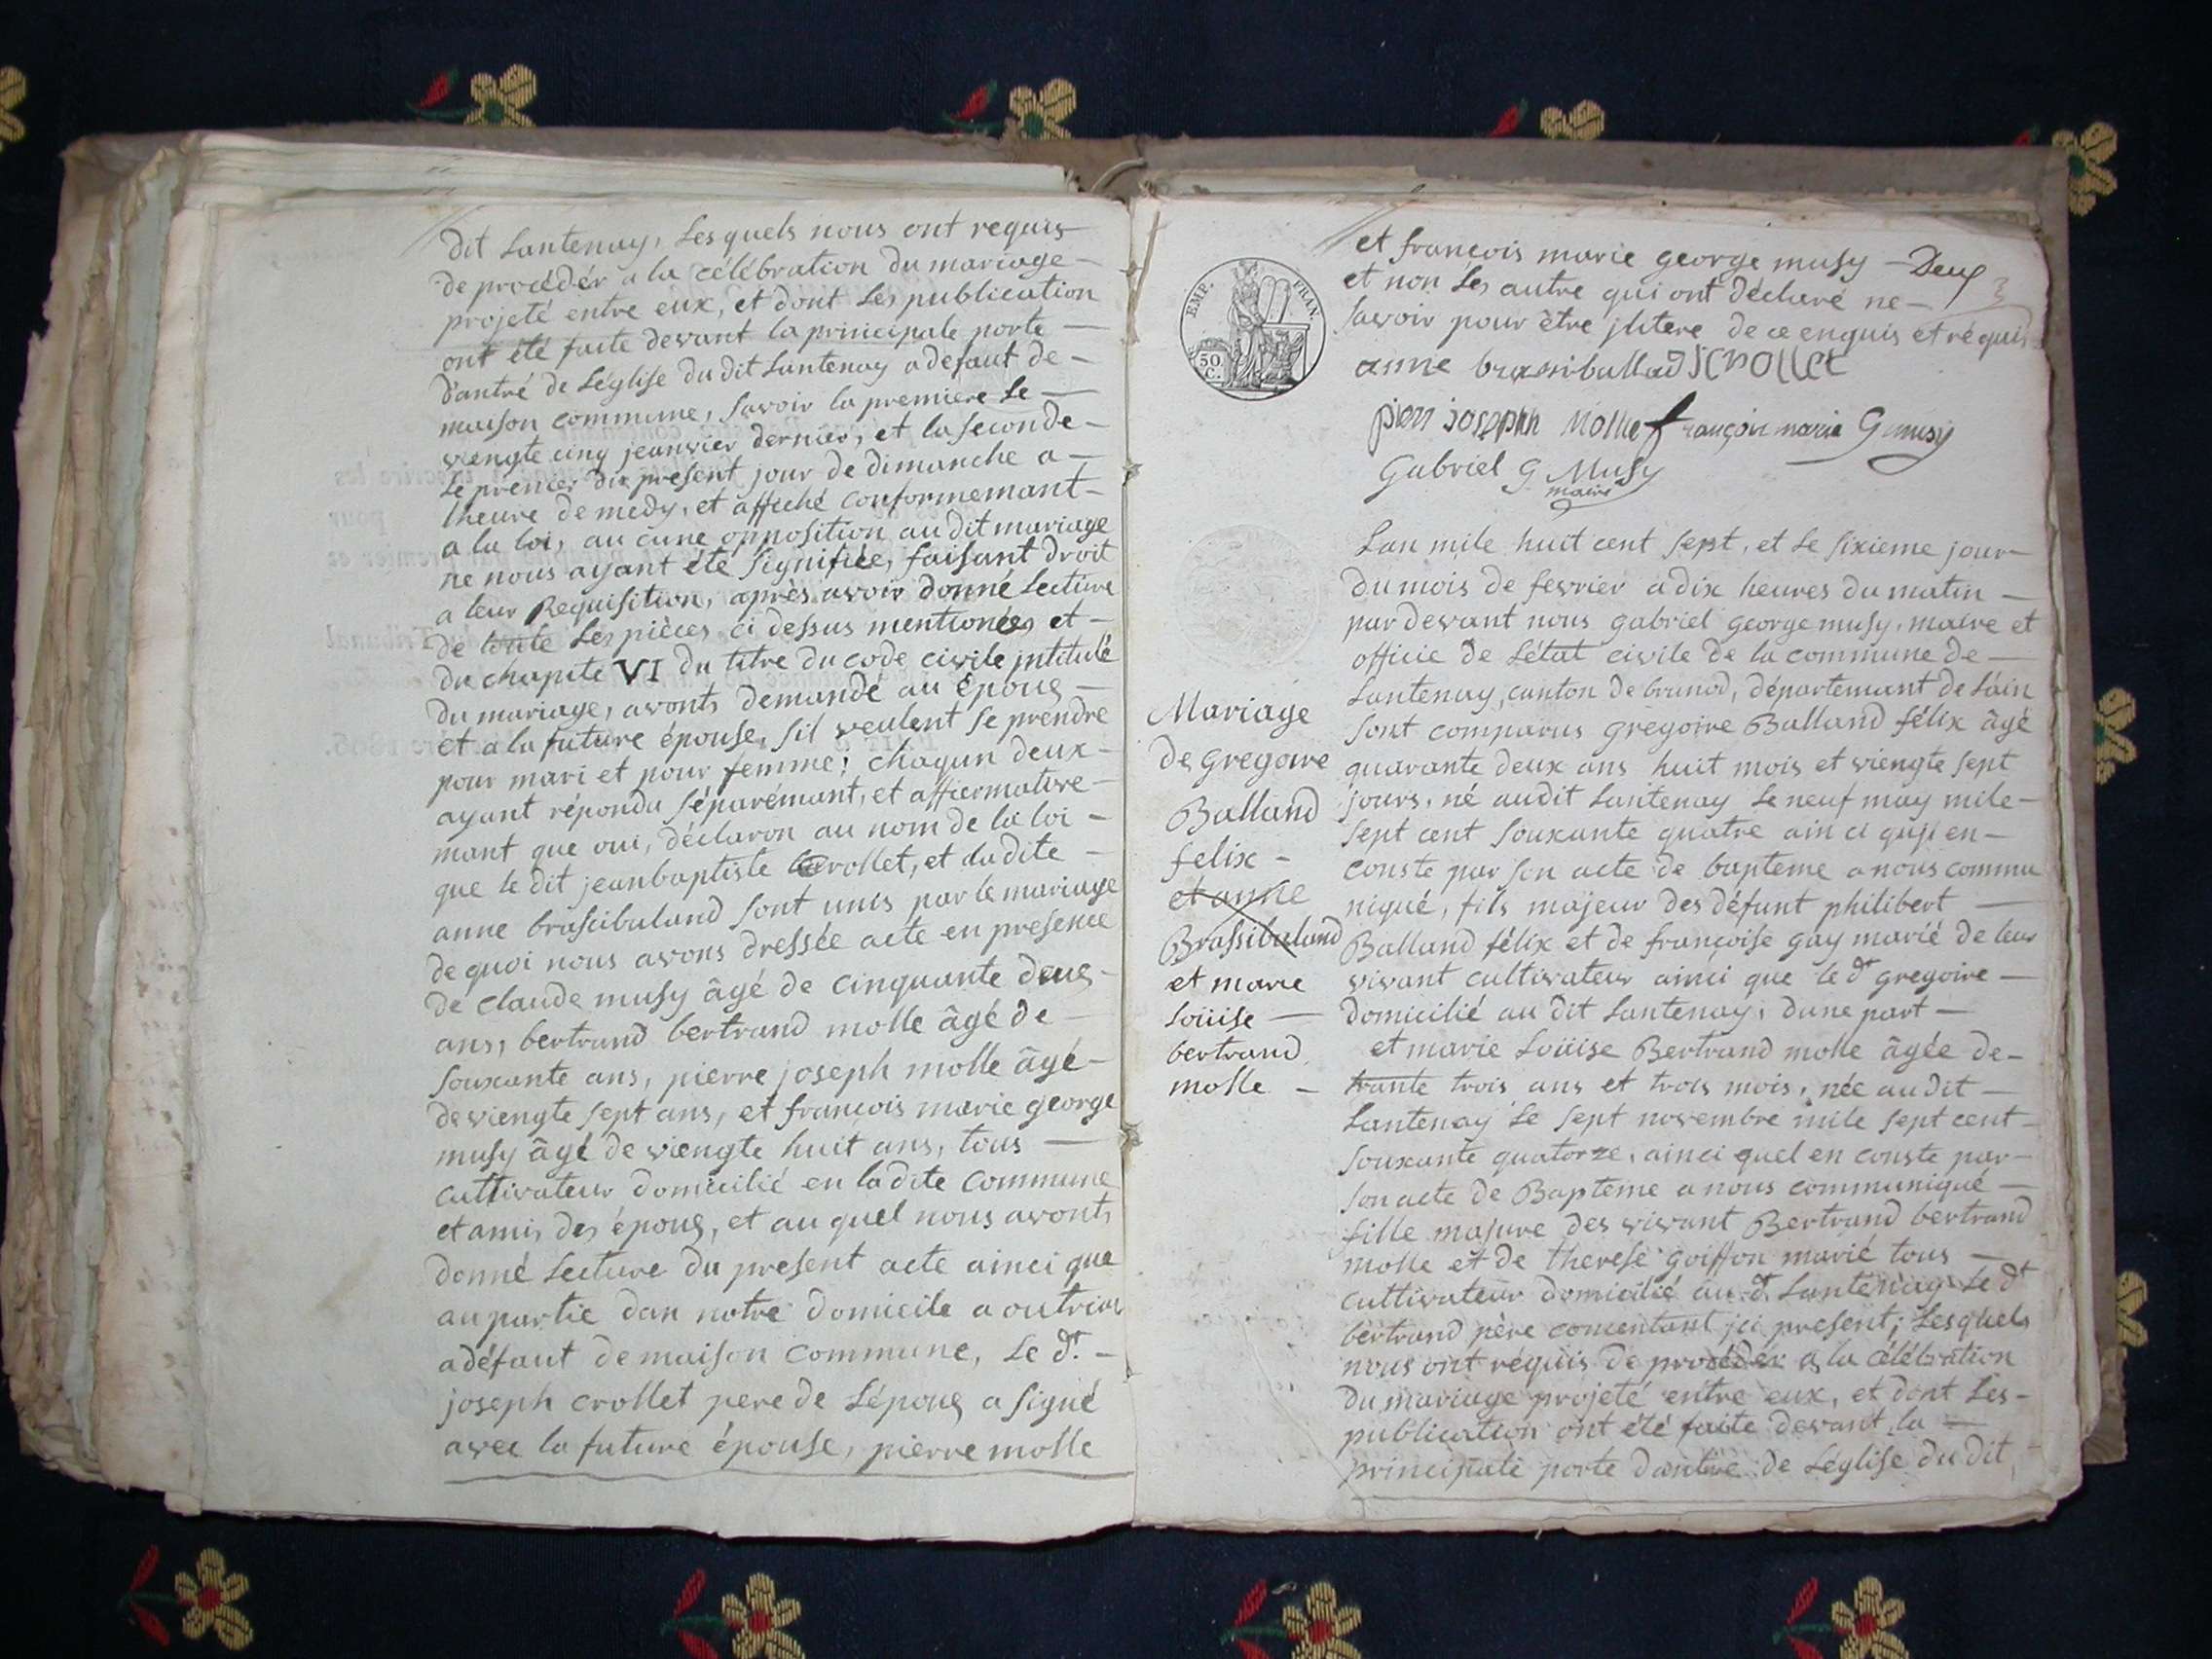 dit Lantenay, Lesquels nous ont requis
de procédér a la célébration du mariage
projeté entre eux, et dont Les publication
ont été faite devant la principale porte
d'antré de Léglise du dit Lantenay a defaut de
maison commune, savoir la premiere Le
viengte cinq jeanvier dernier, et la seconde
Le premier du present jour de dimanche a
lheure de medy, et affiché conformemant
a la loi, au cune opposition au dit mariage
ne nous ayant été signifiée, faisant droit
a leur Requisition, après avoir donné Lecture
de toute Les pièces ci dessus mentionées et
du chapite VI du titre du code civile jntitulé
du mariage, avonts demandé au Epoux
et a la future épouse, sil veulent se prendre
pour mari et pour femme; chaqun deux
ayant répondu séparémant, et affiermative
mant que oui, déclaron au nom de la loi
que le dit jeanbaptiste Crollet, et ladite
anne brasibaland sont unis par le mariage
de quoi nous avons dressée acte en presence
de Claude musy âgé de cinquante deux
ans, bertrand bertrand molle âgé de
souxante ans, pierre joseph molle âgé
de viengte sept ans, et francois marie george
musy âgé de viengte huit ans, tous
cultivateur domicilié en ladite commune
et amis des époux, et au quel nous avonts
donné Lecture du present acte ainci que
au partie dan notre domicile a outriax
a défaut de maison commune, Le dt.
joseph crollet pere de Lépoux a signé
avec la future épouse, pierre molle
et françois marie george musy Deux
3
et non Les autre qui ont déclaré ne
savoir pour être jlitere de ce enquis et réquis
anne brassiballad J Crollet
pierr joseph molle françois marie G musy
Gabriel G Musy
maire
EMP. FRAN.
50 C.
Lan mile huit cent sept, et Le sixieme jour
du mois de fevrier a dix heures du matin
par devant nous gabriel george musy, maire et
officie de Létat civile de la commune de
Lantenay, canton de brunod, départemant de Láin
sont comparus grégoire Balland félix âgé
quarante deux ans huit mois et viengte sept
jours, né audit Lantenay Le neuf may mile
sept cent souxante quatre ain ci quji en
conste par son acte de bapteme a nous commu
niqué, fils majeur des défunt philibert
Balland félix et de françoise gay marié de leur
vivant cultivateur ainci que le dt gregoire
domicilié au dit Lantenay, dune part
et marie Loüise Bertrand molle âgée de
trante trois ans et trois mois, née au dit
Lantenay Le sept novembre mile sept cent
souxante quatorze, ainci quel en conste par
son acte de Bapteme a nous communiqué
fille majure des vivant Bertrand bertrand
molle et de therese goiffon marié tous
cultivateur domicilié au dt Lantenay Le dt
bertrand père consentant jci present; Lesquels
nous ont réquis de procédér a la célébration
du mariage projeté entre eux, et dont Les
publication ont été faite devant la
principale porte dantré de Léglise du dit
Mariage
de gregoire
Balland
felix
et anne
Brassibaland
et marie
Loüise
bertrand
molle